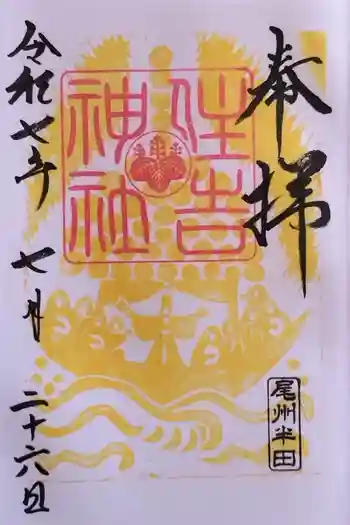 奉拝
住吉
神社
令和七年 七月 二十六日
尾州半田